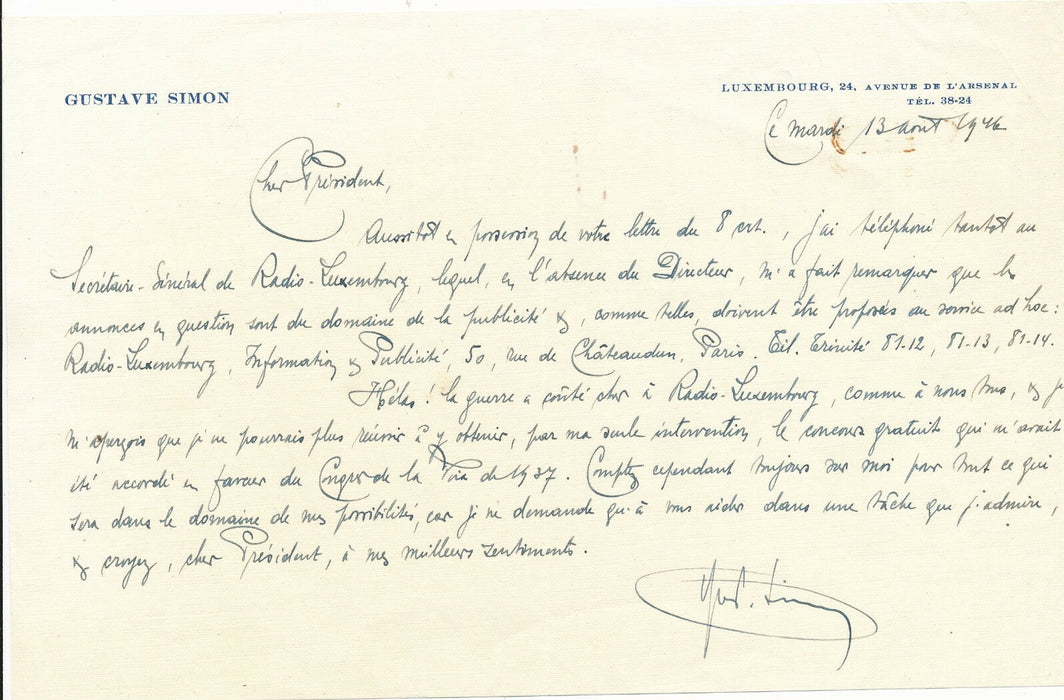 GUSTAVE SIMON
LUXEMBOURG, 24, AVENUE DE L'ARSENAL
TÉL. 38-24
Ce mardi 13 août 1946
Cher Président,
Aussitôt en possession de votre lettre du 8 crt., j'ai téléphoné tantôt au
Secrétaire-Général de Radio-Luxembourg, lequel, en l'absence du Directeur, m'a fait remarquer que les
annonces en question sont du domaine de la publicité &, comme telles, doivent être proposées au service ad hoc:
Radio-Luxembourg, Information & Publicité, 50, rue de Châteaudun, Paris. Tél. Trinité 81-12, 81-13, 81-14.
Hélas! la guerre a coûté cher à Radio-Luxembourg, comme à nous tous, & je
m'aperçois que je ne pourrais plus réussir à y obtenir, par ma seule intervention, le concours gratuit qui m'avait
été accordé en faveur du Congrès de la Voix de 1937. Comptez cependant toujours sur moi pour tout ce qui
sera dans le domaine de mes possibilités, car je ne demande qu'à vous aider dans une tâche que j'admire,
& croyez, cher Président, à mes meilleurs sentiments.
Gust. Simon